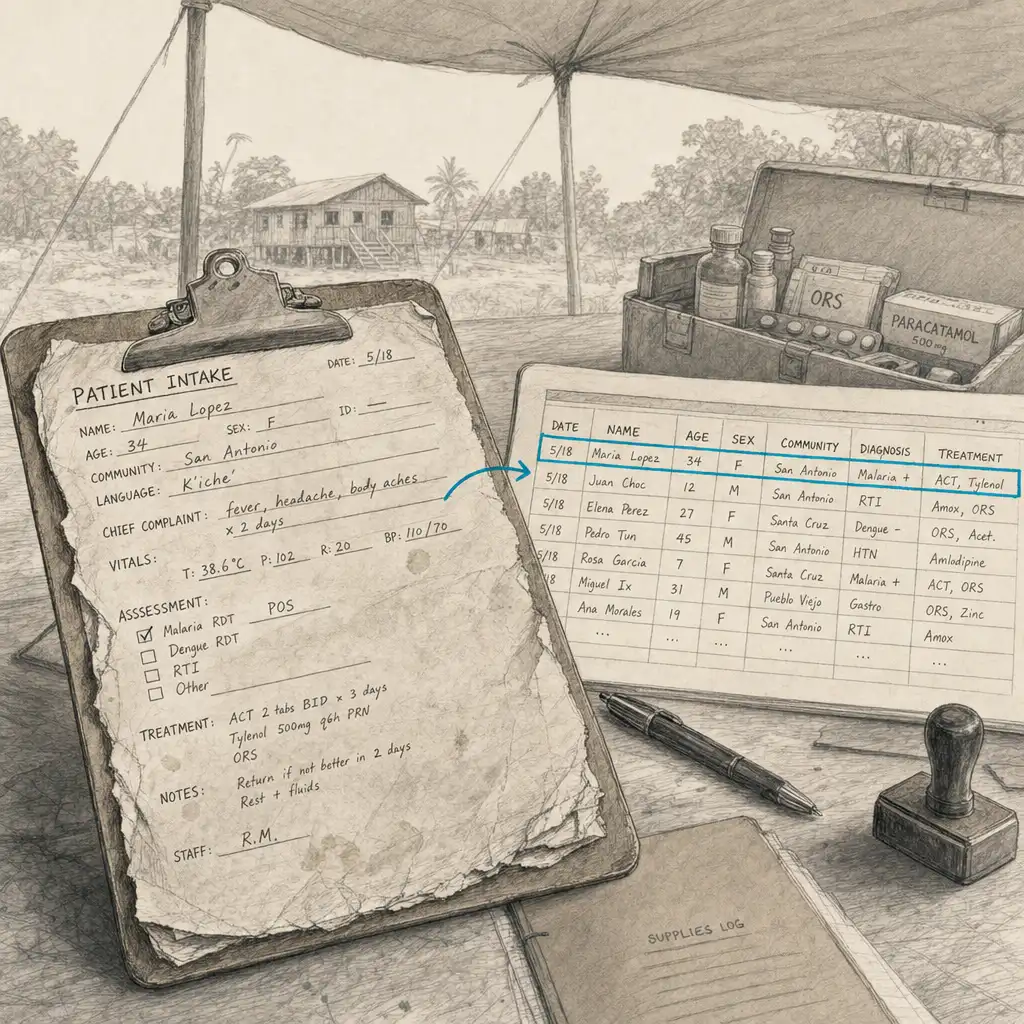 PATIENT INTAKE
DATE: 5/18
NAME: Maria Lopez
AGE: 34 SEX: F ID: —
COMMUNITY: San Antonio
LANGUAGE: K'iche'
CHIEF COMPLAINT: fever, headache, body aches
x 2 days
VITALS: T: 38.6°C P: 102 R: 20 BP: 110/70
ASSSESSMENT:
☑ Malaria RDT POS
☐ Dengue RDT
☐ RTI
☐ Other
TREATMENT: ACT 2 tabs BID x 3 days
Tylenol 500mg q6h PRN
ORS
NOTES: Return if not better in 2 days
Rest + fluids
STAFF: R.M.
ORS
PARACATAMOL
500 mg
DATE NAME AGE SEX COMMUNITY DIAGNOSIS TREATMENT
5/18 Maria Lopez 34 F San Antonio Malaria + ACT, Tylenol
5/18 Juan Choc 12 M San Antonio RTI Amox, ORS
5/18 Elena Perez 27 F Santa Cruz Dengue - ORS, Acet.
5/18 Pedro Tun 45 M San Antonio HTN Amlodipine
5/18 Rosa Garcia 7 F Santa Cruz Malaria + ACT, ORS
18 Miguel Ix 31 M Pueblo Viejo Gastro ORS, Zinc
Ana Morales 19 F San Antonio RTI Amox
... ... ... ... ...
SUPPLIES LOG